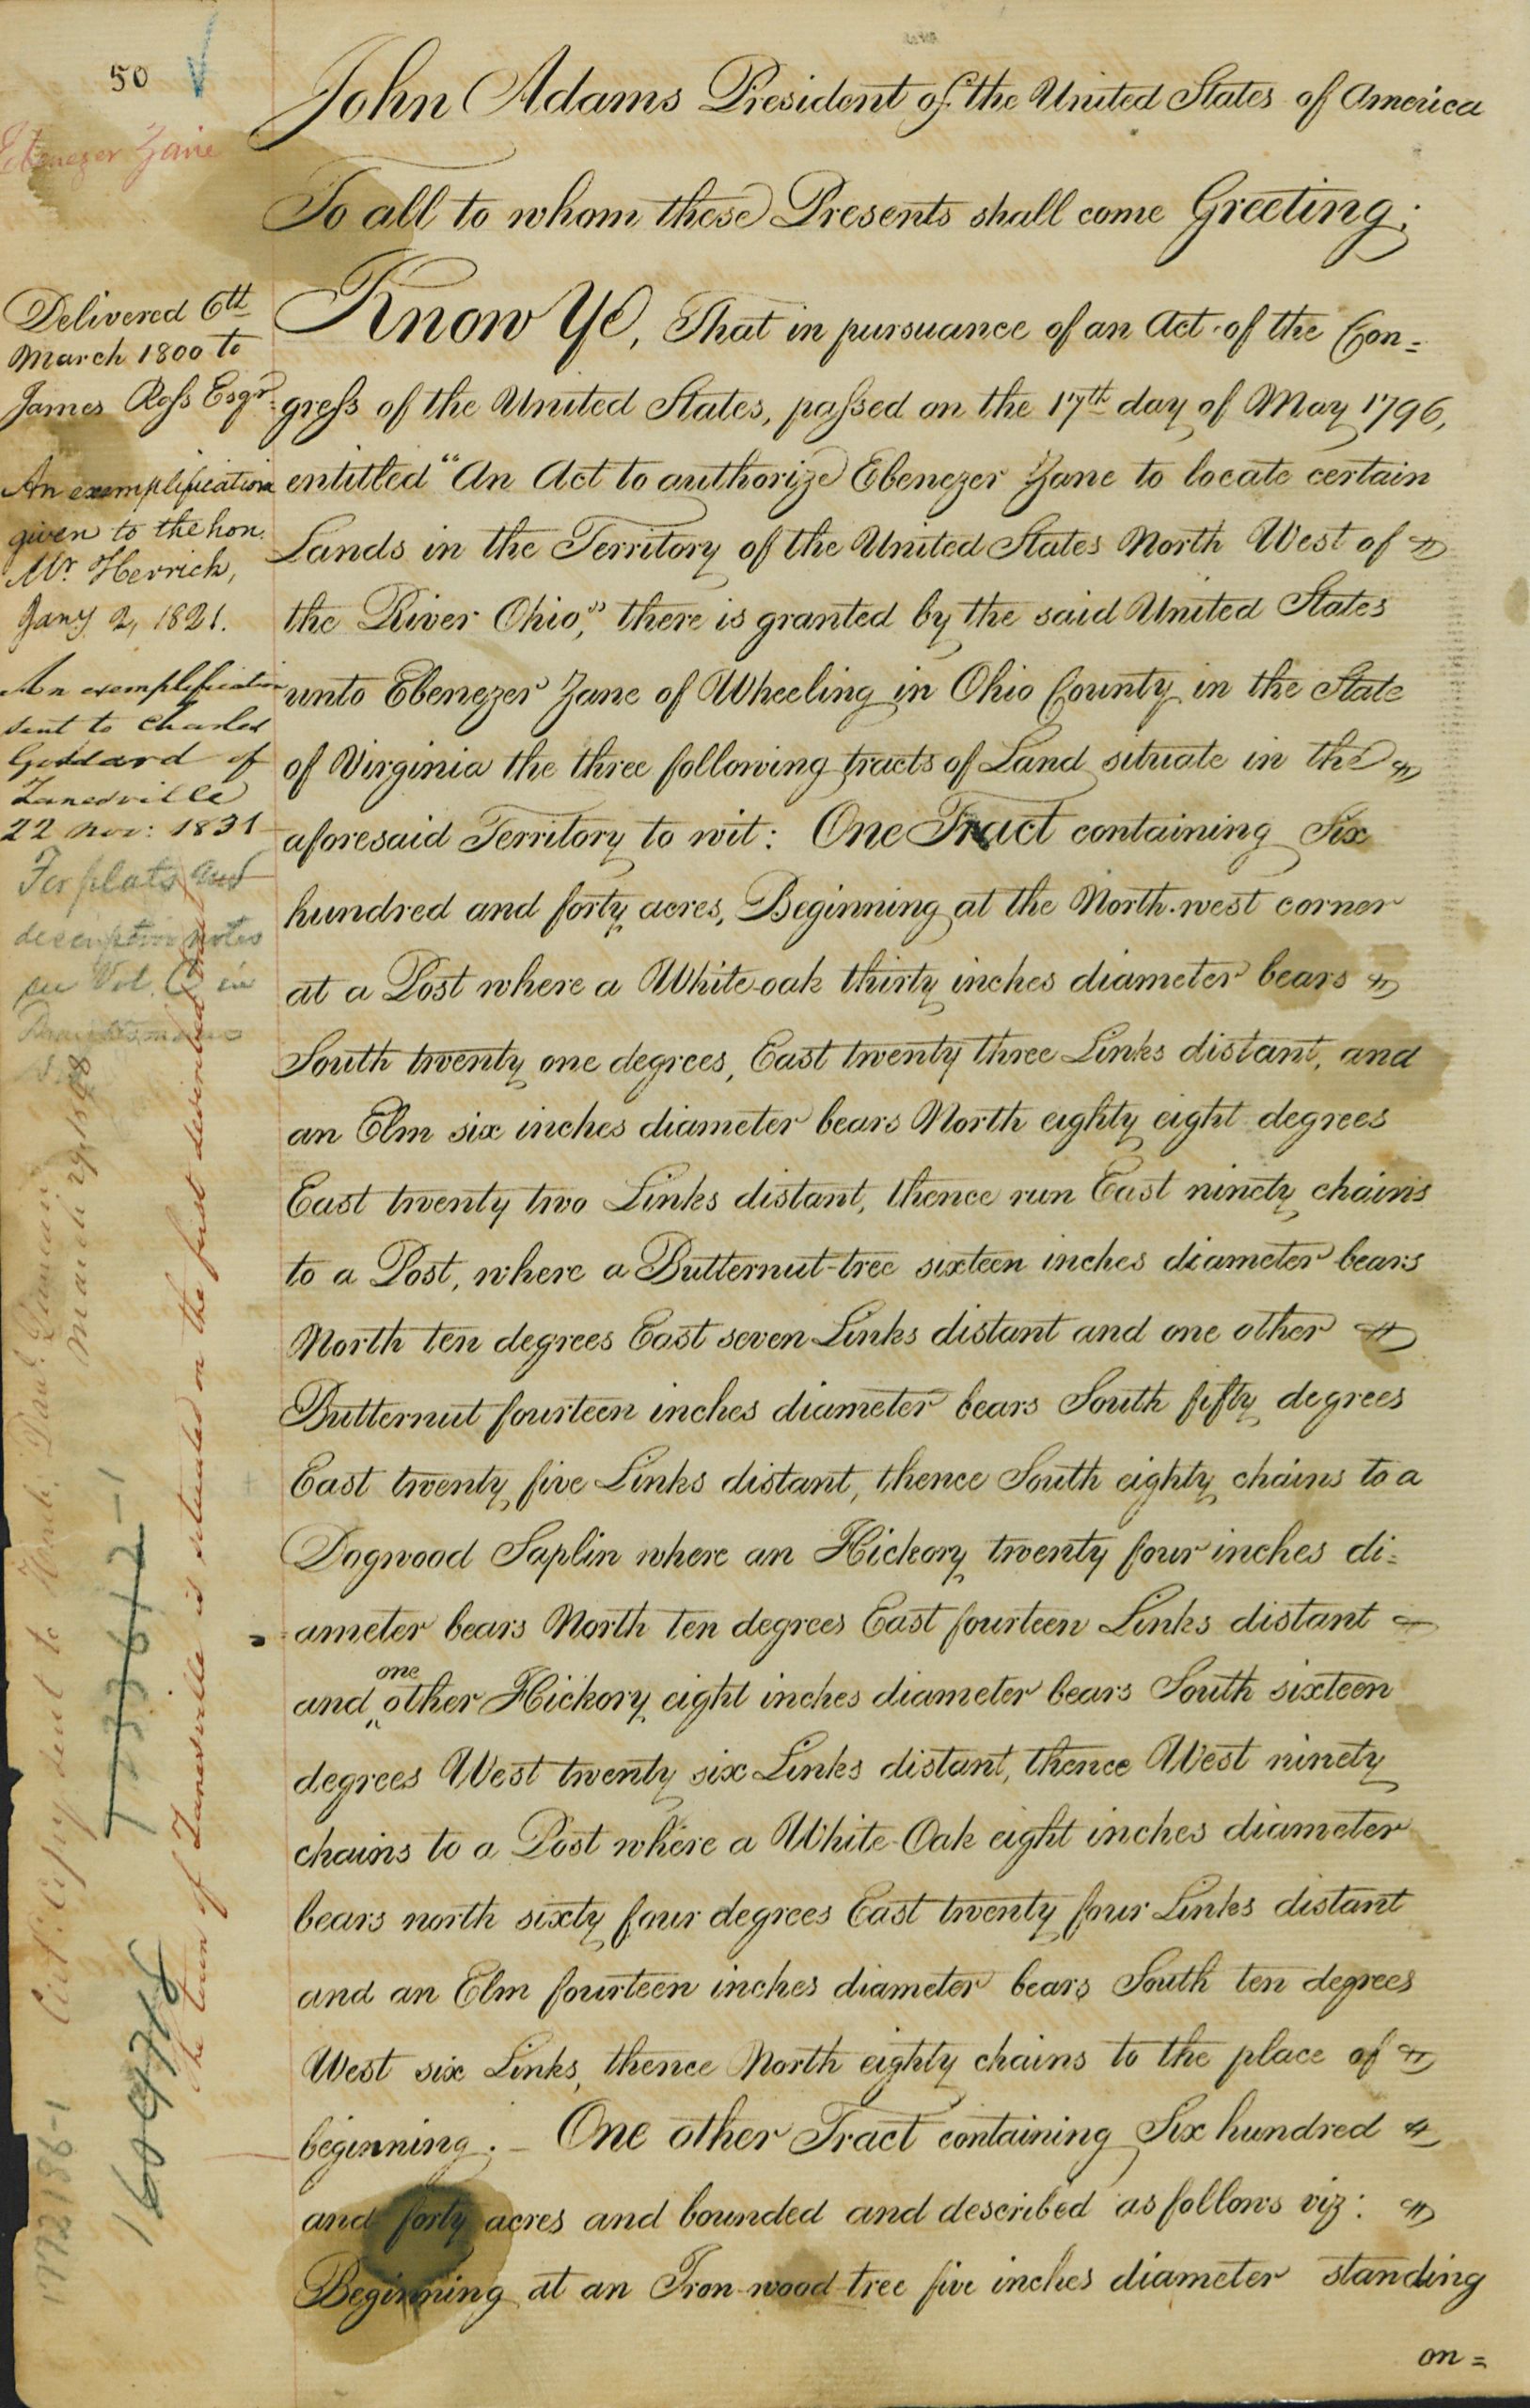 50
Ebenezer Zane
John Adams President of the United States of America
To all to whom these Presents shall come Greeting;
Know Ye, That in pursuance of an Act of the Con=
greſs of the United States, paſsed on the 17th day of May 1796,
entitled "An Act to authorize Ebenezer Zane to locate certain
Lands in the Territory of the United States North West of
the River Ohio," there is granted by the said United States
unto Ebenezer Zane of Wheeling in Ohio County in the State
of Virginia the three following tracts of Land situate in the
aforesaid Territory to wit: One Tract containing Six
hundred and forty acres, Beginning at the North-west corner
at a Post where a White-oak thirty inches diameter bears
South twenty one degrees, East twenty three Links distant, and
an Elm six inches diameter bears North eighty eight degrees
East twenty two Links distant, thence run East ninety chains
to a Post, where a Butternut-tree sixteen inches diameter bears
North ten degrees East seven Links distant and one other
Butternut fourteen inches diameter bears South fifty degrees
East twenty five Links distant, thence South eighty chains to a
Dogwood Saplin where an Hickory twenty four inches di=
ameter bears North ten degrees East fourteen Links distant
and one other Hickory eight inches diameter bears South sixteen
degrees West twenty six Links distant, thence West ninety
chains to a Post where a White-Oak eight inches diameter
bears north sixty four degrees East twenty four Links distant
and an Elm fourteen inches diameter bears South ten degrees
West six Links, thence North eighty chains to the place of
beginning; – One other Tract containing Six hundred
and forty acres and bounded and described as follows viz:
Beginning at an Iron-wood-tree five inches diameter standing
on=
Delivered 6th
March 1800 to
James Roſs Esqr.
An exemplification
given to the hon.
Mr. Herrick,
Jany. 2, 1821.
An exemplification
sent to Charles
Goddard of
Zanesville
22 Nov: 1831
For plats and
descriptive notes
see Vol. C in
Draughtsman's
The town of Zanesville is situated on the first described tract
Cert. Copy sent to Honb.
March 29, 1898
133612-1
160978
1772186-1